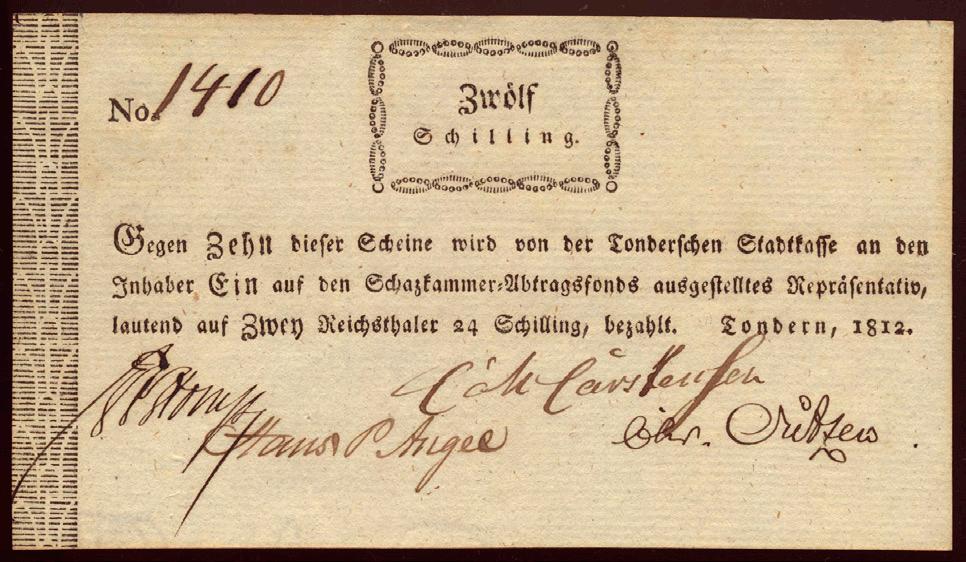 No. 1410
Zwölf
Schilling.
Gegen Zehn dieser Scheine wird von der Tonderschen Stadtkasse an den
Inhaber Ein auf den Schazkammer-Abtragsfonds ausgestelltes Repräsentativ,
lautend auf Zwey Reichsthaler 24 Schilling, bezahlt. Tondern, 1812.
Carstensen
Hans P Angel
Chr.